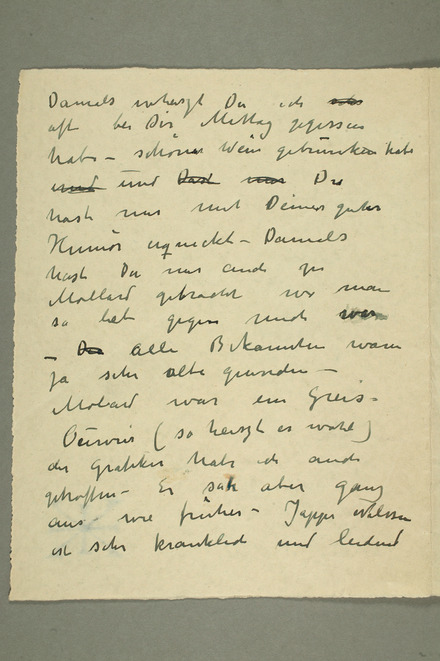 Damals weiszt Du ich
oft bei Dir Mittag gegessen
habe – schönen Wein getrunken habe
und und Du
hast mich mit Deinem guten
Humor erquickt – Damals
hast Du mich auch zu
Mollard gebracht wo man
so lieb gegen mich war
– alle Bekannten waren
ja sehr alte geworden –
Molard war ein Greis –
(so heiszt er wohl)
der Grafiker habe ich auch
getroffen – Er sah aber ganz
aus wie früher – Jappe Nilssen
ist sehr kränklich und leidend